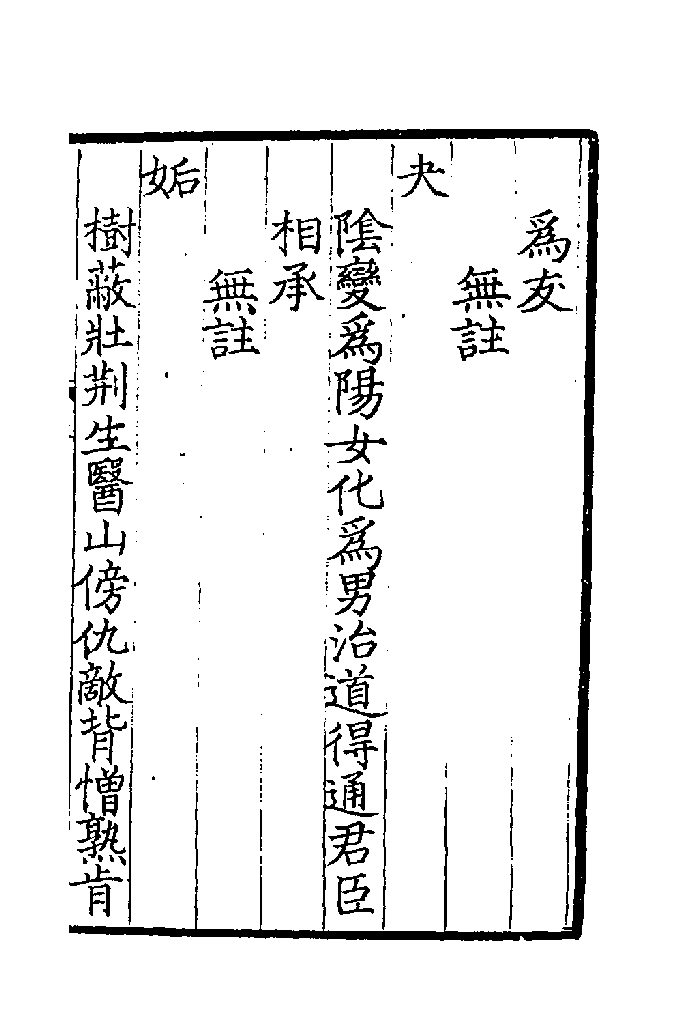 爲友
無註
夬
隂變爲陽女化爲男治道得通君臣
相承
無註
姤
樹蔽壯荆生醫山傍仇敵背憎孰肯